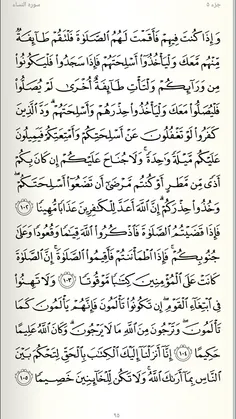 جزء ٥ سورة النساء
وَإِذَا كُنتَ فِيهِمْ فَأَقَمْتَ لَهُمُ ٱلصَّلَوٰةَ فَلْتَقُمْ طَآئِفَةٌ
مِّنْهُم مَّعَكَ وَلْيَأْخُذُوٓا۟ أَسْلِحَتَهُمْ فَإِذَا سَجَدُوا۟ فَلْيَكُونُوا۟
مِن وَرَآئِكُمْ وَلْتَأْتِ طَآئِفَةٌ أُخْرَىٰ لَمْ يُصَلُّوا۟
فَلْيُصَلُّوا۟ مَعَكَ وَلْيَأْخُذُوا۟ حِذْرَهُمْ وَأَسْلِحَتَهُمْ ۗ وَدَّ ٱلَّذِينَ
كَفَرُوا۟ لَوْ تَغْفُلُونَ عَنْ أَسْلِحَتِكُمْ وَأَمْتِعَتِكُمْ فَيَمِيلُونَ
عَلَيْكُم مَّيْلَةً وَٰحِدَةً ۚ وَلَا جُنَاحَ عَلَيْكُمْ إِن كَانَ بِكُمْ
أَذًى مِّن مَّطَرٍ أَوْ كُنتُم مَّرْضَىٰٓ أَن تَضَعُوٓا۟ أَسْلِحَتَكُمْ ۖ
وَخُذُوا۟ حِذْرَكُمْ ۗ إِنَّ ٱللَّهَ أَعَدَّ لِلْكَٰفِرِينَ عَذَابًا مُّهِينًا ١٠٢
فَإِذَا قَضَيْتُمُ ٱلصَّلَوٰةَ فَٱذْكُرُوا۟ ٱللَّهَ قِيَٰمًا وَقُعُودًا وَعَلَىٰ
جُنُوبِكُمْ ۚ فَإِذَا ٱطْمَأْنَنتُمْ فَأَقِيمُوا۟ ٱلصَّلَوٰةَ ۚ إِنَّ ٱلصَّلَوٰةَ
كَانَتْ عَلَى ٱلْمُؤْمِنِينَ كِتَٰبًا مَّوْقُوتًا ١٠٣ وَلَا تَهِنُوا۟
فِى ٱبْتِغَآءِ ٱلْقَوْمِ ۖ إِن تَكُونُوا۟ تَأْلَمُونَ فَإِنَّهُمْ يَأْلَمُونَ كَمَا
تَأْلَمُونَ ۖ وَتَرْجُونَ مِنَ ٱللَّهِ مَا لَا يَرْجُونَ ۗ وَكَانَ ٱللَّهُ عَلِيمًا
حَكِيمًا ١٠٤ إِنَّآ أَنزَلْنَآ إِلَيْكَ ٱلْكِتَٰبَ بِٱلْحَقِّ لِتَحْكُمَ بَيْنَ
ٱلنَّاسِ بِمَآ أَرَىٰكَ ٱللَّهُ ۚ وَلَا تَكُن لِّلْخَآئِنِينَ خَصِيمًا ١٠٥
٩٥